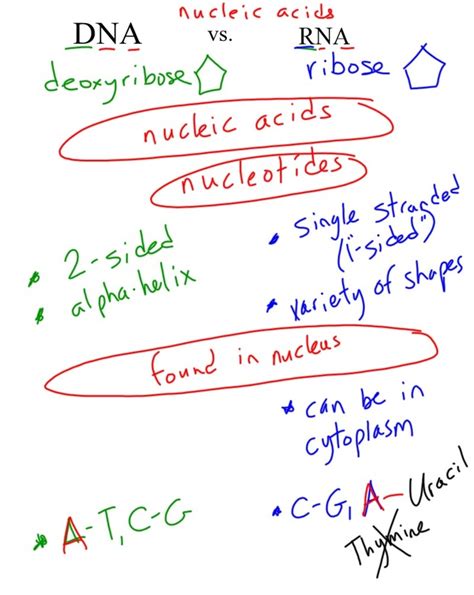 nucleic acids
DNA vs. RNA
deoxyribose ribose
nucleic acids
nucleotides
2-sided
alpha-helix
single stranded
("1-sided")
variety of shapes
found in nucleus
can be in
cytoplasm
A-T, C-G
C-G, A-Uracil
Thymine